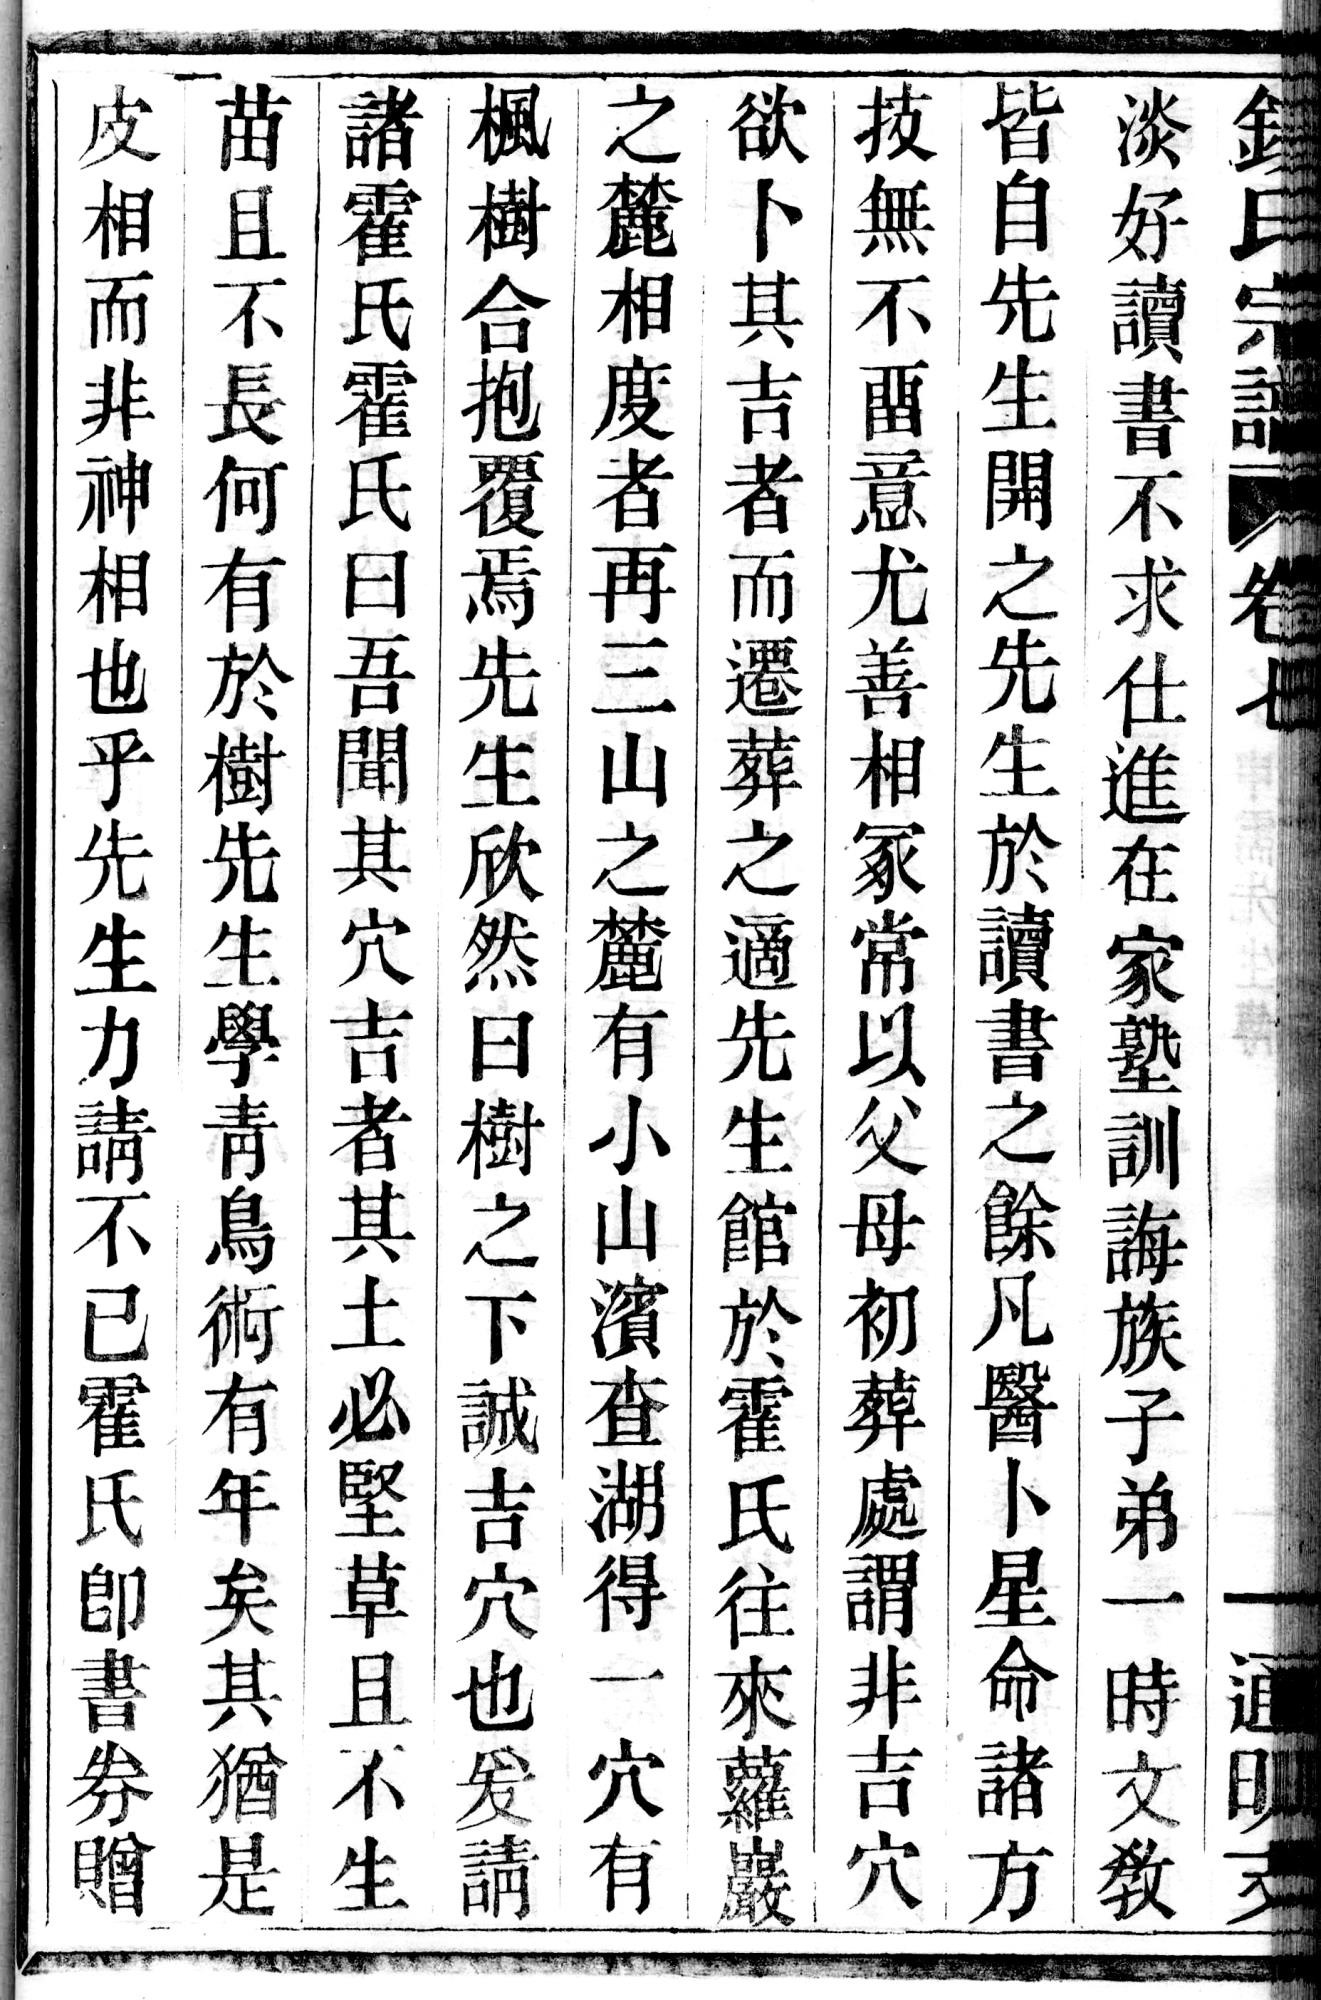 氏宗譜 卷七 一 通明
淡好讀書不求仕進在家塾訓誨族子弟一時文教
皆自先生開之先生於讀書之餘凡醫卜星命諸方
技無不畱意尤善相冢常以父母初葬處謂非吉穴
欲卜其吉者而遷葬之適先生館於霍氏往來蘿巖
之麓相度者再三山之麓有小山濱查湖得一穴有
楓樹合抱覆焉先生欣然曰樹之下誠吉穴也爰請
諸霍氏霍氏曰吾聞其穴吉者其土必堅草且不生
苗且不長何有於樹先生學青鳥術有年矣其猶是
皮相而非神相也乎先生力請不已霍氏卽書券贈